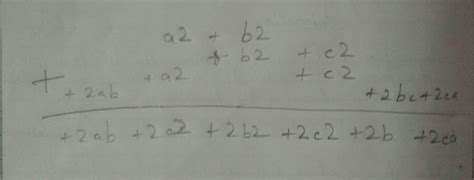 a2 + b2
+ b2 + c2
+ +2ab +a2 + c2 +2bc+2ca
+2ab +2a2 +2b2 +2c2 +2b +2ca